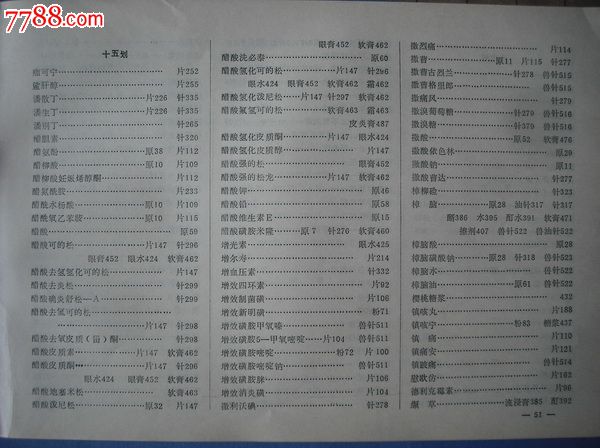 7788.com
十五划
瘟可宁……片252
蜜肝醇……片255
潘散丁……片226 针335
潘生丁……片226 针335
潘别丁……针265
醋胆素……针320
醋氨酚……原38 片112
醋柳酸……原10 片109
醋酸妊娠烯醇酮……片199
醋氮酰胺……片233
醋酰水杨酸……原10 片109
醋酰氧乙苯胺……原10 片115
醋酸……原59
醋酸可的松……片147 针296
眼膏452 眼水424 软膏462
醋酸去氢氢化可的松……片147
醋酸去炎松……针299
醋酸确炎舒松—A……针299
醋酸去氢可的松……
……片147 针298
醋酸去氧皮质(甾)酮……针298
醋酸皮质素……片147 软膏462
醋酸皮质酮……片147 针296
眼水424 眼膏452 软膏462
醋酸地塞米松……软膏463
醋酸泼尼松……原32 片147
眼膏452 软膏462
醋酸洗必泰……原60
醋酸氢化可的松……片147 针296
眼水424 眼膏452 软膏462 霜462
醋酸氢化泼尼松……片147 针297 软膏462
醋酸氟氢可的松……软膏463 霜463
皮炎膏487
醋酸氢化皮质酮……片147 眼水424
醋酸氢化皮质醇……片147
醋酸强的松……眼膏452
醋酸强的松龙……片147 软膏462
醋酸钾……原46
醋酸铅……原58
醋酸维生素E……原15
醋酸磺胺米隆……原7 针270 软膏460
增光素……眼水425
增尔寿……片214
增血压素……针332
增效四环素……片92
增效制菌磺……片104
增效新明磺……粉71
增效磺胺甲氧嗪……兽针511
增效磺胺5—甲氧嘧啶……片104 兽针511
增效磺胺嘧啶……粉72 片100
增效磺胺嘧啶钠……兽针511
增效磺胺脒……片104
增效消炎磺……片104
撒利沃碘……针278
撒烈痛……片114
撒曹……原11 片115 针277
撒曹古烈兰……针278 兽针515
撒曹格里郎……兽针515
撒痛风……针279
撒溴葡萄糖……针279 兽针516
撒溴糖……针279 兽针516
撒酸……原52 软膏476
撒酸依色林……原29
撒酸钠……原11
撒酸曹达……针277
樟柳硷……针317
樟脑……原28 油针317 针317
酊386 水395 酊水391 软膏471
擦剂407 兽针522 兽油针522
樟脑酸……原28
樟脑磺酸钠……原28 针318 兽针523
樟脑水……兽针522
樟脑油……原61 兽针522
樱桃糖浆……432
镇咳丸……片188
镇咳宁……粉83 糖浆437
镇痛……片110
镇痛安……片121
镇酸痛……片161
慰欧仿……片163
德利克霉素……片96
缬草……流浸膏385 酊392
— 51 —